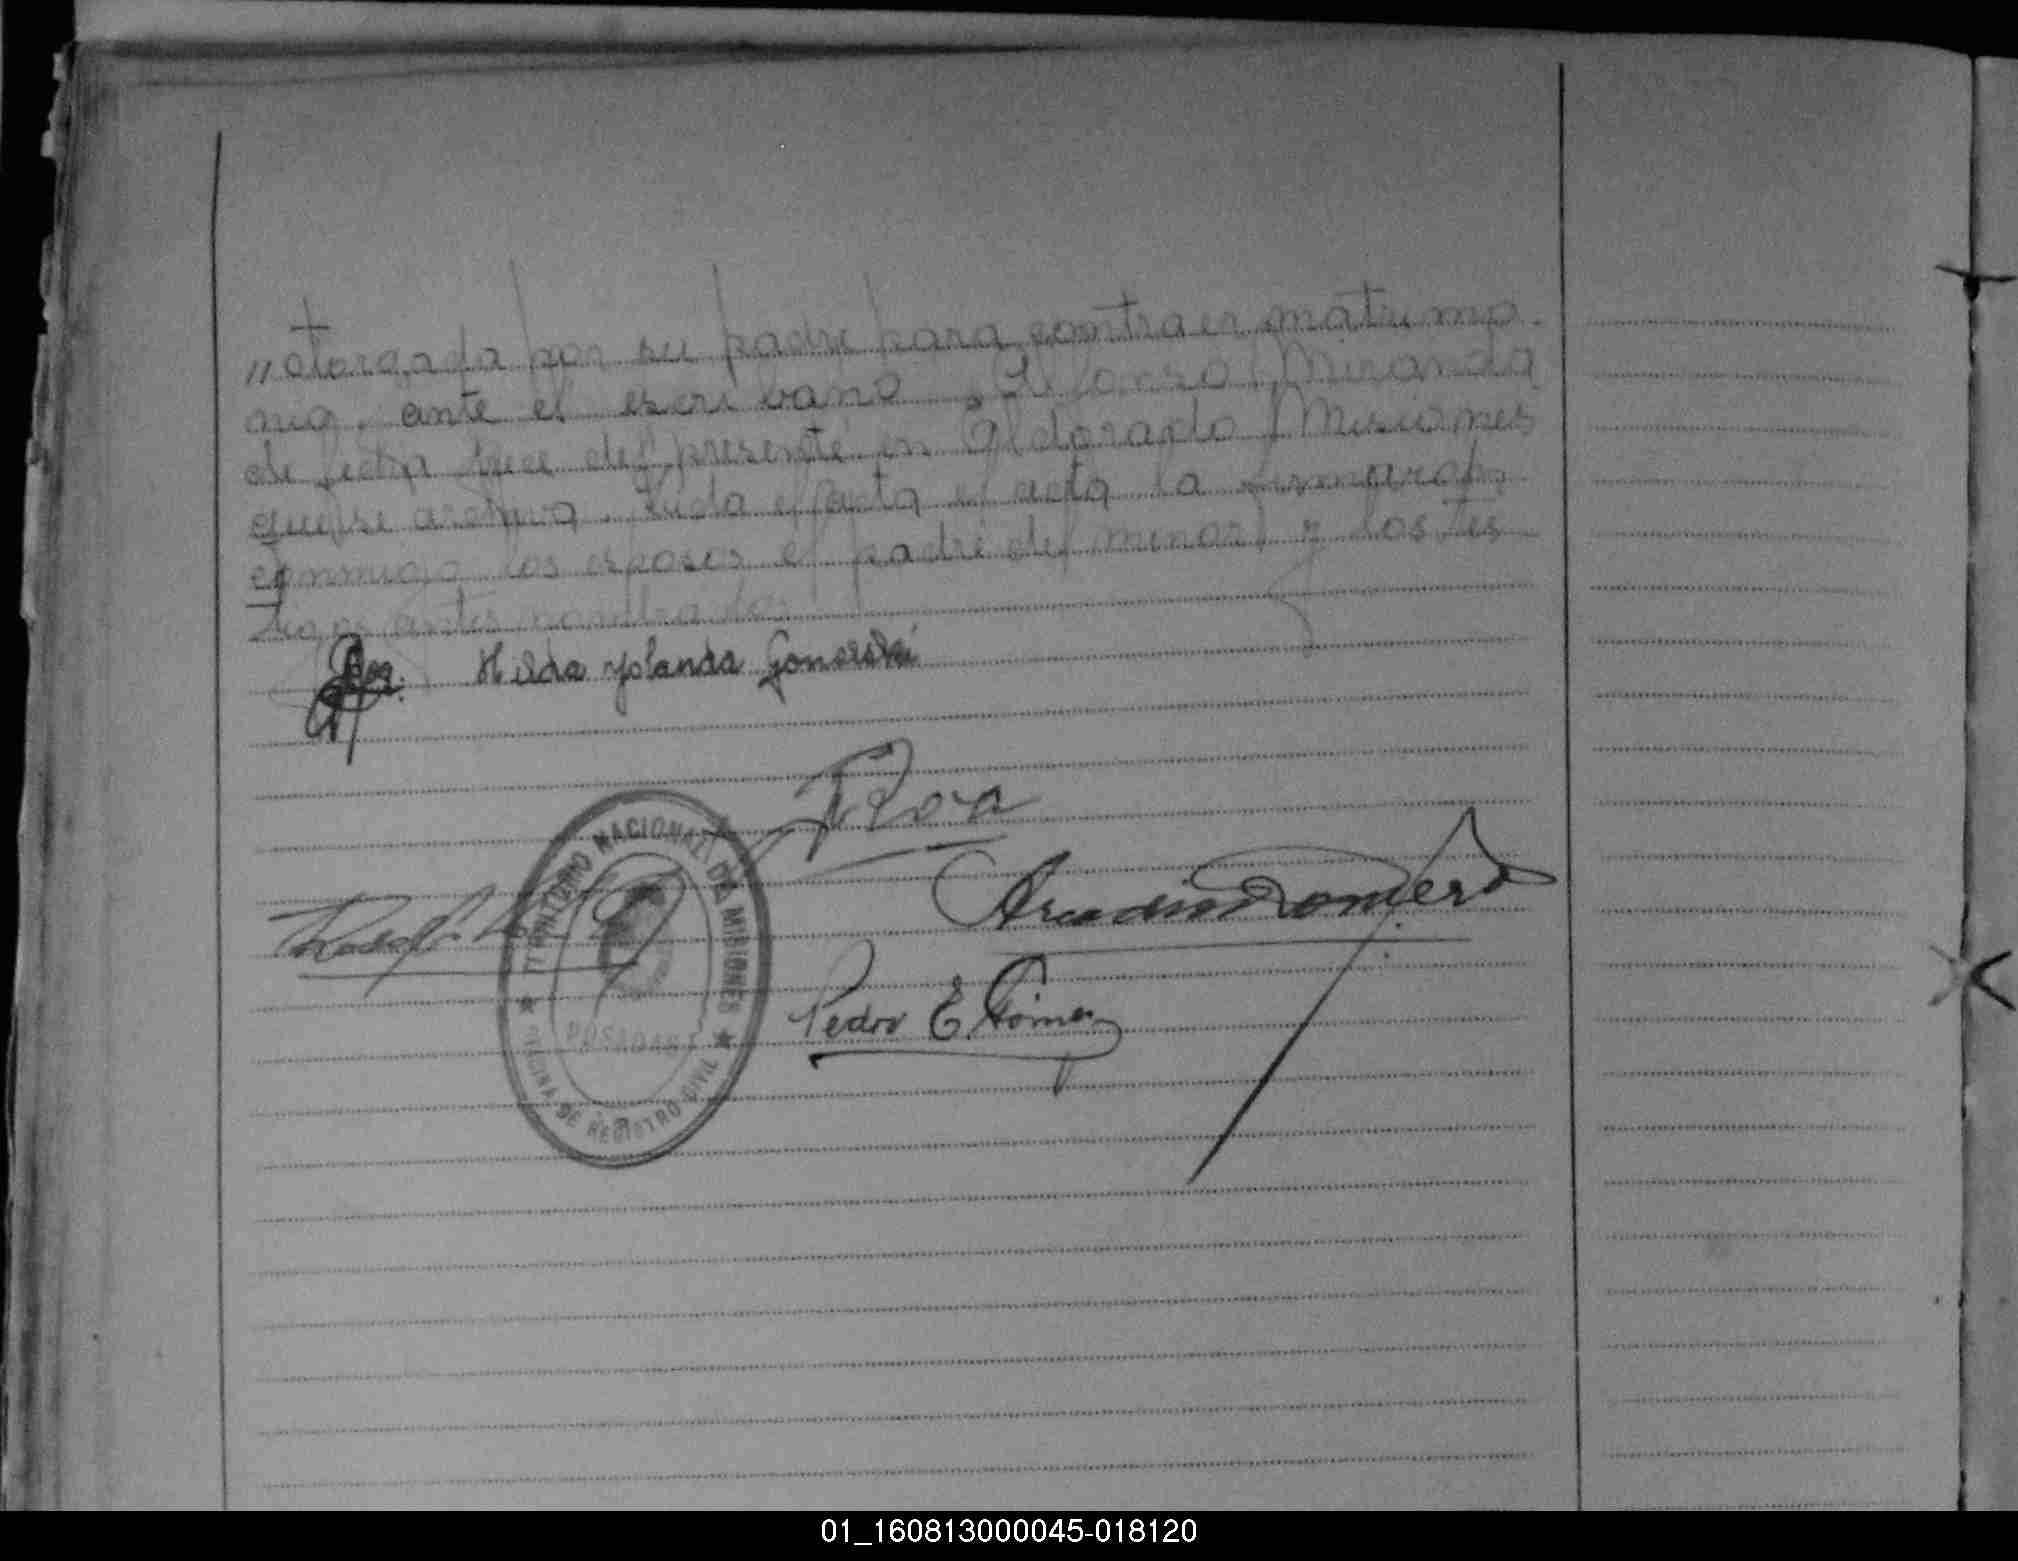 „ otorgada por su padre para contraer matrimo-
nio, ante el escribano Ildefonso Miranda
de fecha trece del presente en Eldorado Misiones
que se archiva. Leida el acta el acta la firmaron
conmigo los esposos el padre del menor y los tes-
tigos antes nombrados
Hilda Yolanda Gonoreski
Roa
TERRITORIO NACIONAL DE MISIONES
Arcadio Romero
Pedro E. Gómez
POSADAS
OFICINA DE REGISTRO CIVIL
01_160813000045-018120